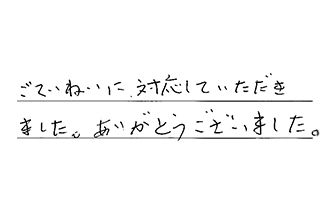 ごていねいに対応していただき
ました。ありがとうございました。